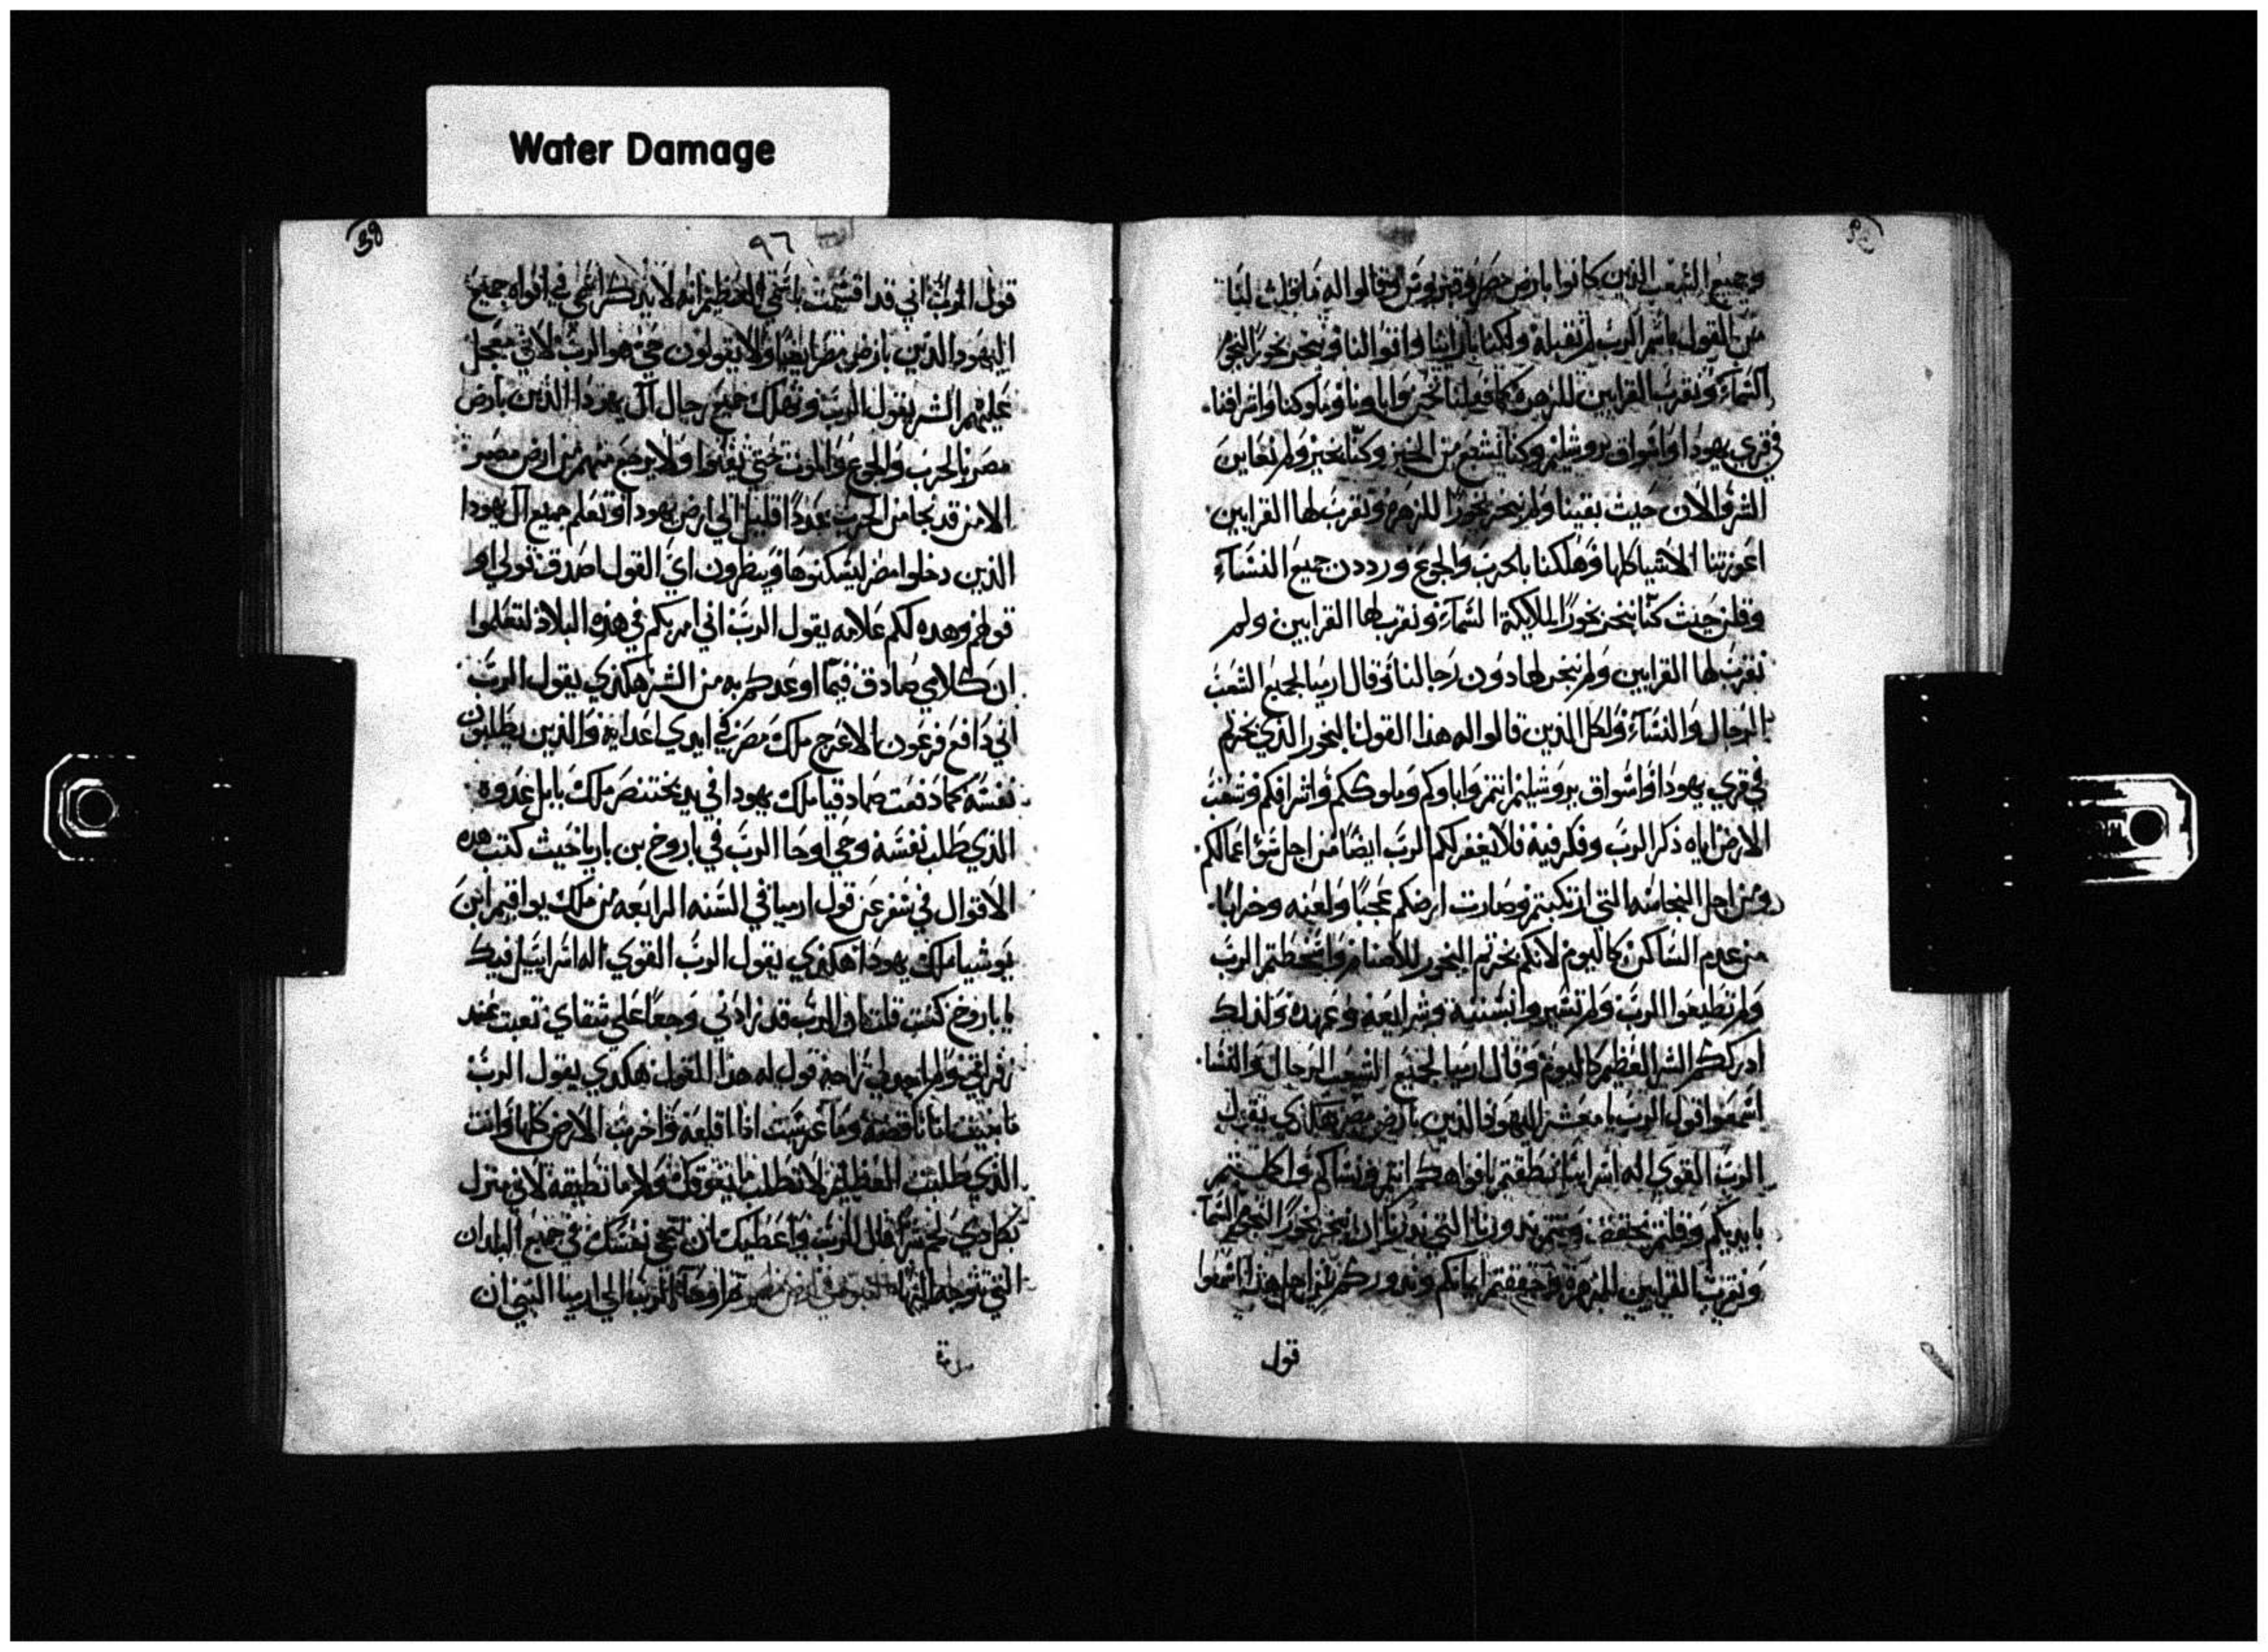 Water Damage
وجميع الشعب الذين كانوا بارض مصر وقبروس وقالوا له ما قلت لنا
من القول باسم الرب لم نقبله ولكنا باراينا واقوالنا ونبخر بخورًا لنجوم
السماء ونقرب القرابين للزهرة كما فعلنا نحن واباونا وملوكنا واشرافنا
في قري يهودا واسواق يروشليم وكنا نشبع من الخبز وكنا بخير ولم نعاين
الشر والان حيث بقينا ولم نبخر بخورًا للزهرة ونقرب لها القرابين
اعوزتنا الاشيا كلها وهلكنا بالحرب والجوع ورددن جميع النساء
وقلن حيث كنا نبخر بخورًا لملايكة السماء ونقرب لها القرابين ولم
نقرب لها القرابين ولم نبخر لها دون رجالنا وقال ارميا لجميع الشعب
الرجال والنساء ولكل الذين قالوا له هذا القول البخور الذي بخرتم
في قري يهودا واسواق يروشليم انتم واباوكم وملوككم واشرافكم وشعب
الارض اياه ذكر الرب وفكر فيه فلا يغفر لكم الرب ايضًا من اجل سو اعمالكم
ومن اجل النجاسه التي ارتكبتم وصارت ارضكم عجبًا ولعنه وخرابًا
من عدم الساكن كاليوم لانكم بخرتم البخور للاصنام واسخطتم الرب
ولم تطيعوا الرب ولم تسيروا بسننه وشرايعه وعهده ولذلك
ادرككم الشر العظيم كاليوم وقال ارميا لجميع الشعب الرجال والنسا
اسمعوا قول الرب يا معشر اليهود الذين بارض مصر هكذي يقول
الرب القوي اله اسراييل نطقتم بافواهكم انتم ونساكم واكملتم
بايديكم وقلتم نحقق ونتم ندورنا التي ندرنا ان نبخر بخورًا لنجوم السما
ونقرب القرابين للزهرة وحققتم ايمانكم وندوركم من اجل هذا اسمعوا
قول
39
٩٦
قول الرب اني قد اقسمت باسمي العظيم انه لا يذكر اسمي في افواه جميع
اليهود الذين بارض مصر ايضًا ولا يقولون حي هو الرب لاني معجل
عليهم الشر يقول الرب ونهلك جميع رجال آل يهودا الذين بارض
مصر بالحرب والجوع والموت حتي يفنوا ولا يرجع منهم من ارض مصر
الا من قد نجا من الحرب عددًا قليل الي ارض يهودا وتعلم جميع آل يهودا
الذين دخلوا مصر ليسكنوها وينظرون اي القول اصدق قولي او
قولهم وهده لكم علامه يقول الرب اني امر بكم في هذه البلاد لتعلموا
ان كلامي صادق فيما اوعدكم به من الشر هكذي يقول الرب
اني دافع فرعون الاعرج ملك مصر في ايدي اعدايه والذين يطلبون
نفسه كما دفعت صادقيا ملك يهودا في يد بختنصر ملك بابل عدوه
الذي طلب نفسه وحي اوحا الرب في باروخ بن باريا حيث كتب هده
الاقوال في سفر عن قول ارميا في السنه الرابعه من ملك يواقيم ابن
يوشيا ملك يهودا هكذي يقول الرب القوي اله اسراييل فيك
يا باروخ كنت قلت ان الرب قد زادني وجعًا علي شقاي تعبت عند
زفراتي ولم اجد لي راحه قول له هذا القول هكدي يقول الرب
ما بنيت انا ناقضه وما غرست انا اقلعه واخرب الارض كلها وانت
الذي طلبت العظايم لا تطلب ما يفوقك ولا ما تطيقه لاني منزل
بكل دي لحم شرًا قال الرب واعطيك ان تنجي نفسك في جميع البلدان
التي تتوجه اليها النبوه في ارض مصر مما اوحاه الرب الي ارميا النبي ان